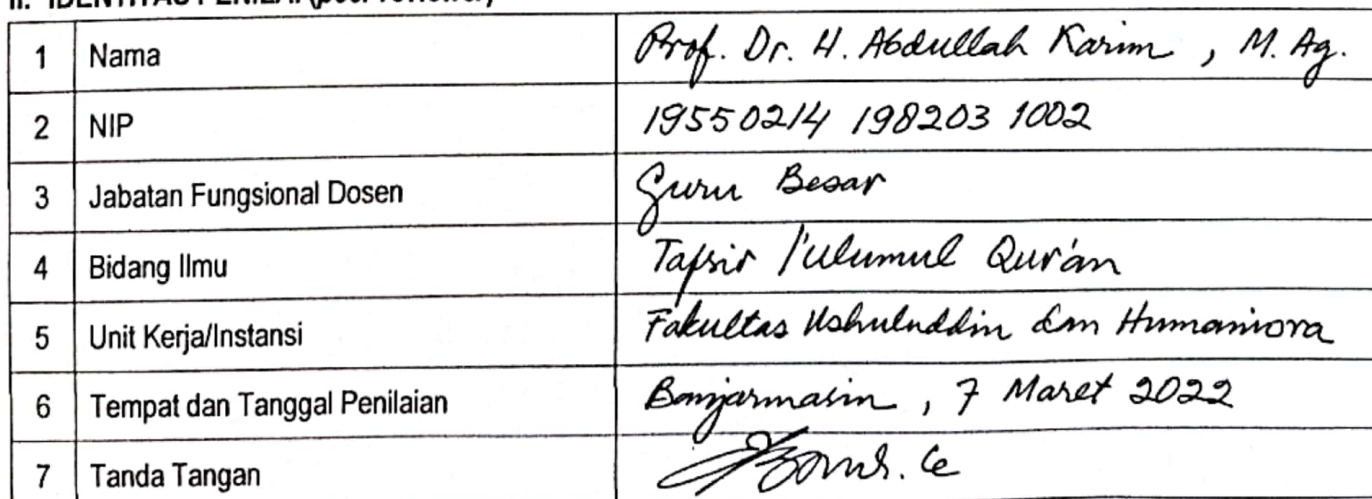 II. IDENTITAS PENILAI (peer reviewer)
1 Nama Prof. Dr. H. Abdullah Karim, M. Ag.
2 NIP 19550214 198203 1002
3 Jabatan Fungsional Dosen Guru Besar
4 Bidang Ilmu Tafsir /'ulumul Qur'an
5 Unit Kerja/Instansi Fakultas Ushuluddin dan Humaniora
6 Tempat dan Tanggal Penilaian Banjarmasin, 7 Maret 2022
7 Tanda Tangan